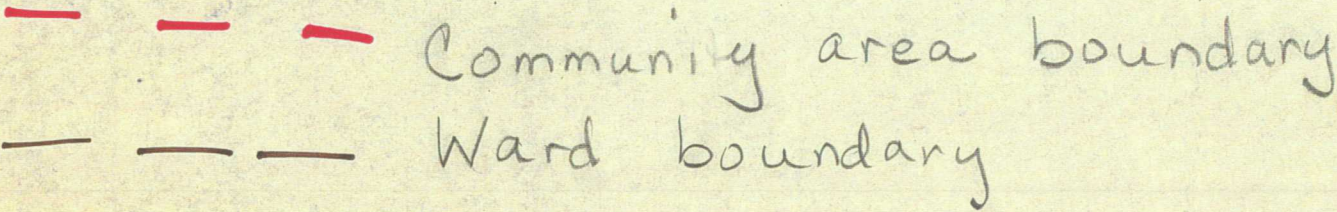 Community area boundary
Ward boundary